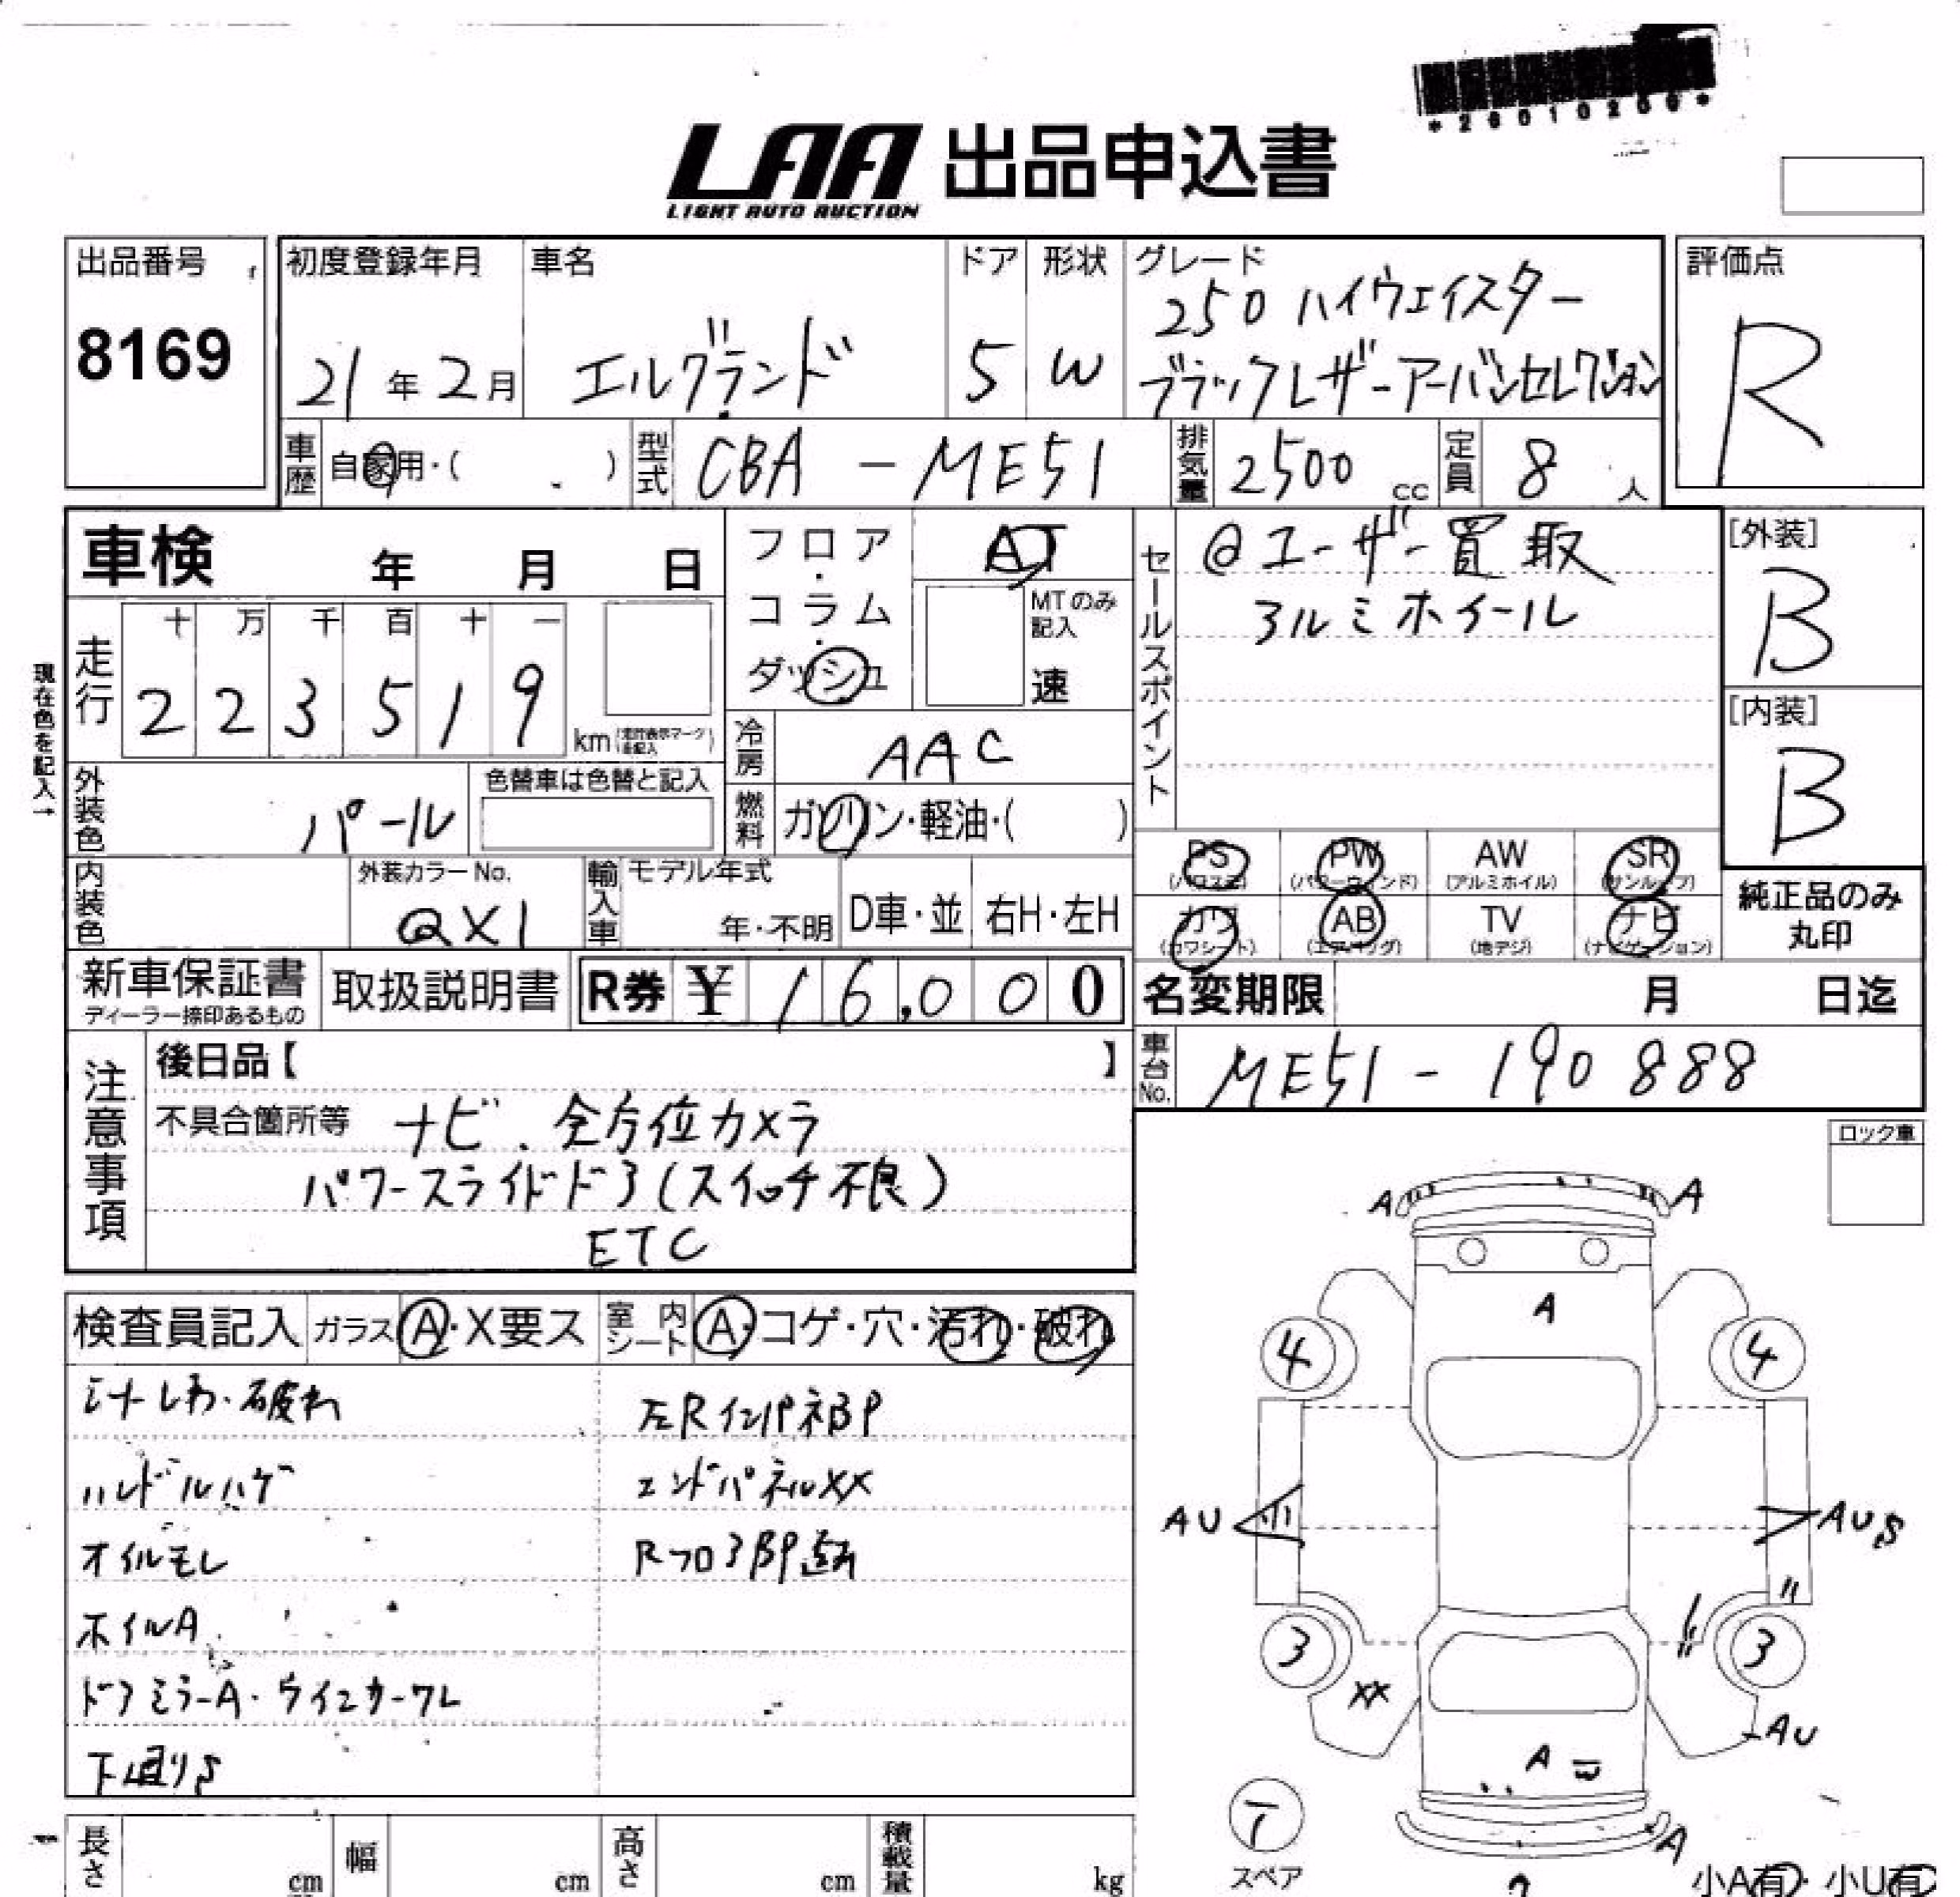 *26010206*
LAA 出品申込書
LIGHT AUTO AUCTION
出品番号
8169
初度登録年月
21年2月
車名
エルグランド
ドア
5
形状
W
グレード
250 ハイウェイスター
ブラックレザーアーバンセレクション
評価点
R
車歴
自家用・( )
型式
CBA - ME51
排気量
2500 cc
定員
8 人
車検 年 月 日
フロア・コラム・ダッシュ
AT
MTのみ記入
速
セールスポイント
@ユーザー買取
アルミホイール
[外装]
B
[内装]
B
現在色を記入→
走行
十 万 千 百 十 一
2 2 3 5 1 9 km
冷房
AAC
燃料
ガソリン・軽油・( )
外装色
パール
色替車は色替と記入
内装色
外装カラーNo.
QX1
輸入車
モデル年式
年・不明
D車・並
右H・左H
PS
(パワステ)
PW
(パワーウィンド)
AW
(アルミホイル)
SR
(サンルーフ)
カワ
(カワシート)
AB
(エアバッグ)
TV
(地デジ)
ナビ
(ナビゲーション)
純正品のみ
丸印
新車保証書
ディーラー捺印あるもの
取扱説明書
R券 ¥ 16,000
名変期限 月 日迄
車台No.
ME51 - 190888
注意事項
後日品【 】
不具合箇所等 ナビ. 全方位カメラ
パワースライドドア(スイッチ不良)
ETC
ロック車
検査員記入
ガラス A・X要ス
室内シート A・コゲ・穴・汚れ・破れ
シートしわ・破れ
ハンドルハゲ
オイルモレ
ホイルA
ドアミラーA・ウインカーワレ
下廻りS
左RインパネBP
エンドパネルXX
RフロアBP歪
A A
A
4 4
AU AUS
3 3
XX
AU
A
A
スペア
小A有・小U有
長さ cm
幅 cm
高さ cm
積載量 kg